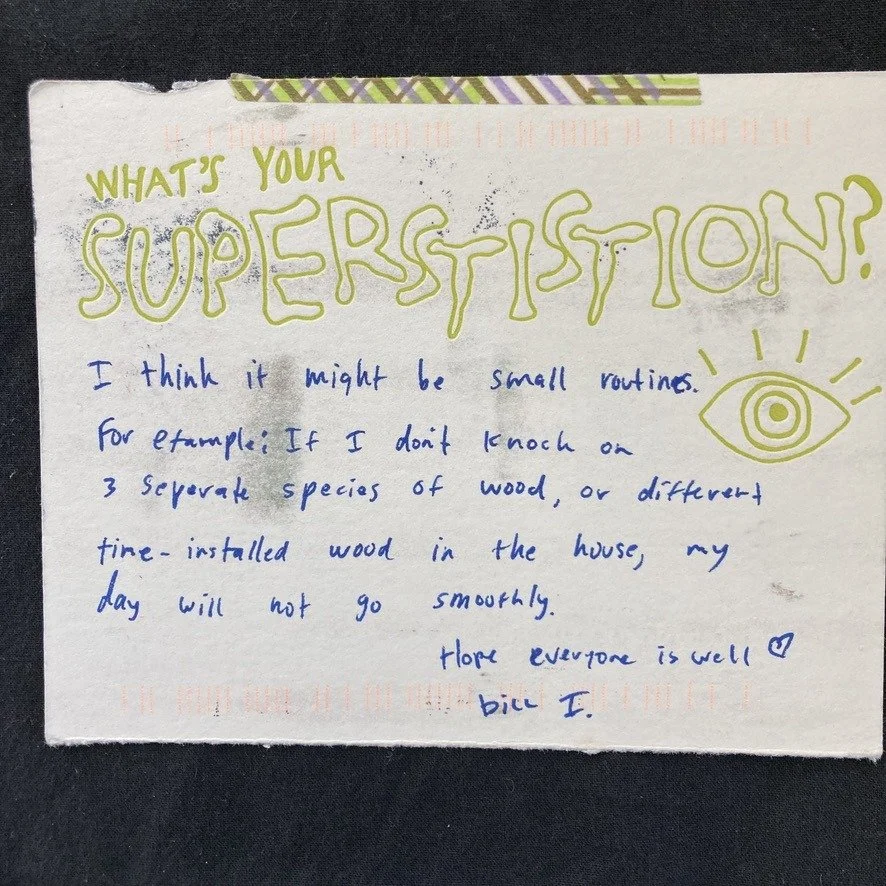 WHAT'S YOUR
SUPERSTISTION?
I think it might be small routines.
For example; If I don't knock on
3 seperate species of wood, or different
time-installed wood in the house, my
day will not go smoothly.
Hope everyone is well ♡
bill I.